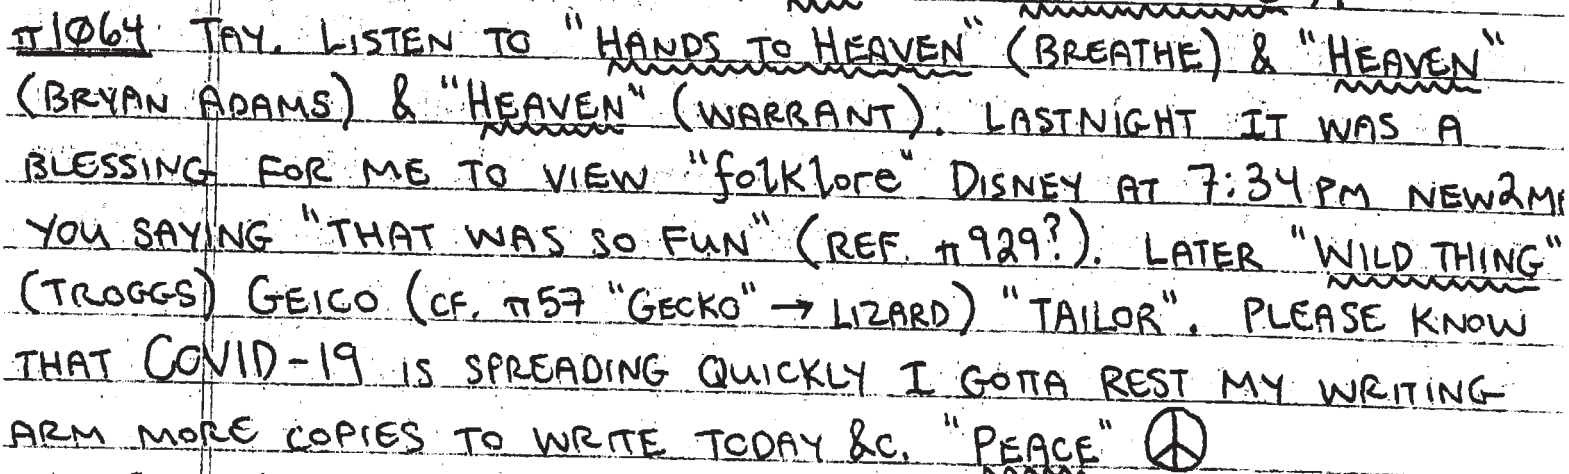 π1064 TAY. LISTEN TO "HANDS TO HEAVEN" (BREATHE) & "HEAVEN"
(BRYAN ADAMS) & "HEAVEN" (WARRANT). LASTNIGHT IT WAS A
BLESSING FOR ME TO VIEW "folklore" DISNEY AT 7:34PM NEW2ME
YOU SAYING "THAT WAS SO FUN" (REF. π929?). LATER "WILD THING"
(TROGGS) GEICO (CF. π57 "GECKO" → LIZARD) "TAILOR". PLEASE KNOW
THAT COVID-19 IS SPREADING QUICKLY I GOTTA REST MY WRITING
ARM MORE COPIES TO WRITE TODAY &C. "PEACE" ☮